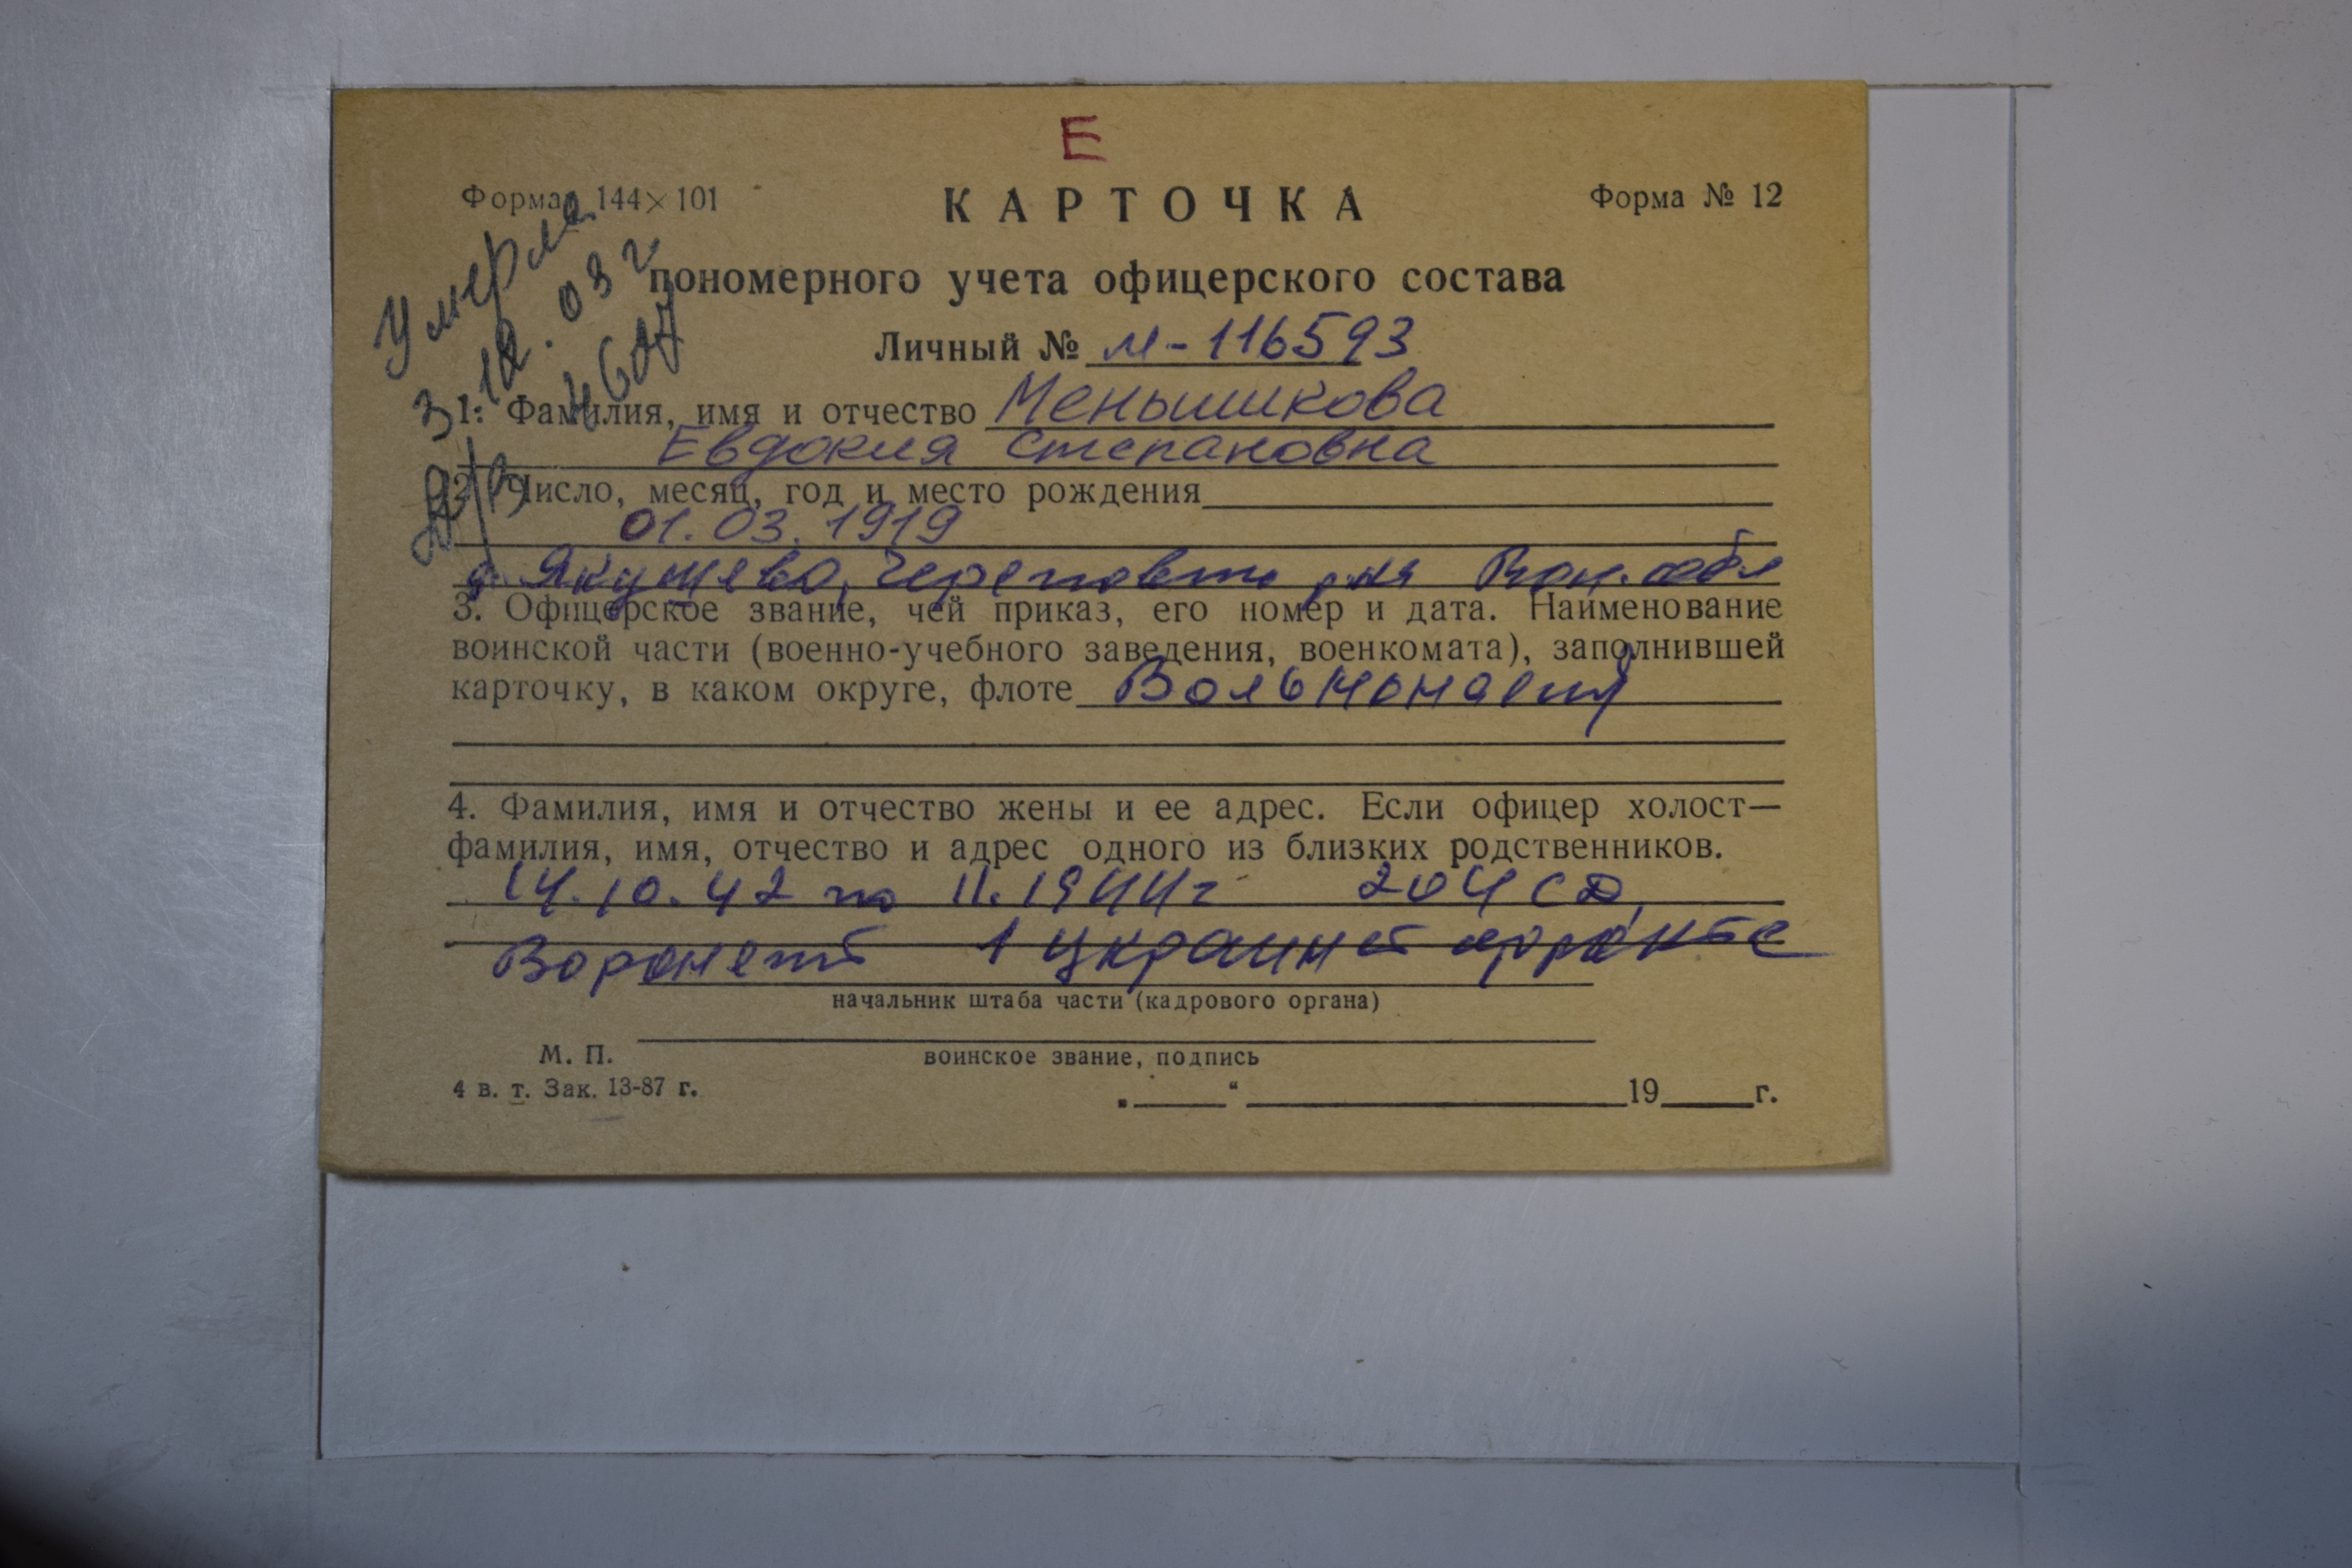 Е
Формат 144×101
КАРТОЧКА
Форма № 12
Умерла
3.12.03 г
пономерного учета офицерского состава
Личный № М-116593
1. Фамилия, имя и отчество Меньшикова
Евдокия Степановна
2. Число, месяц, год и место рождения
01.03.1919
д. Якушево, Черепов
3. Офицерское звание, чей приказ, его номер и дата. Наименование
воинской части (военно-учебного заведения, военкомата), заполнившей
карточку, в каком округе, флоте
4. Фамилия, имя и отчество жены и ее адрес. Если офицер холост—
фамилия, имя, отчество и адрес одного из близких родственников.
14.10.42 по 11.1944г 204 СД,
1 Украинс фронте
начальник штаба части (кадрового органа)
М. П.
воинское звание, подпись
4 в. т. Зак. 13-87 г.
„ “ 19 г.